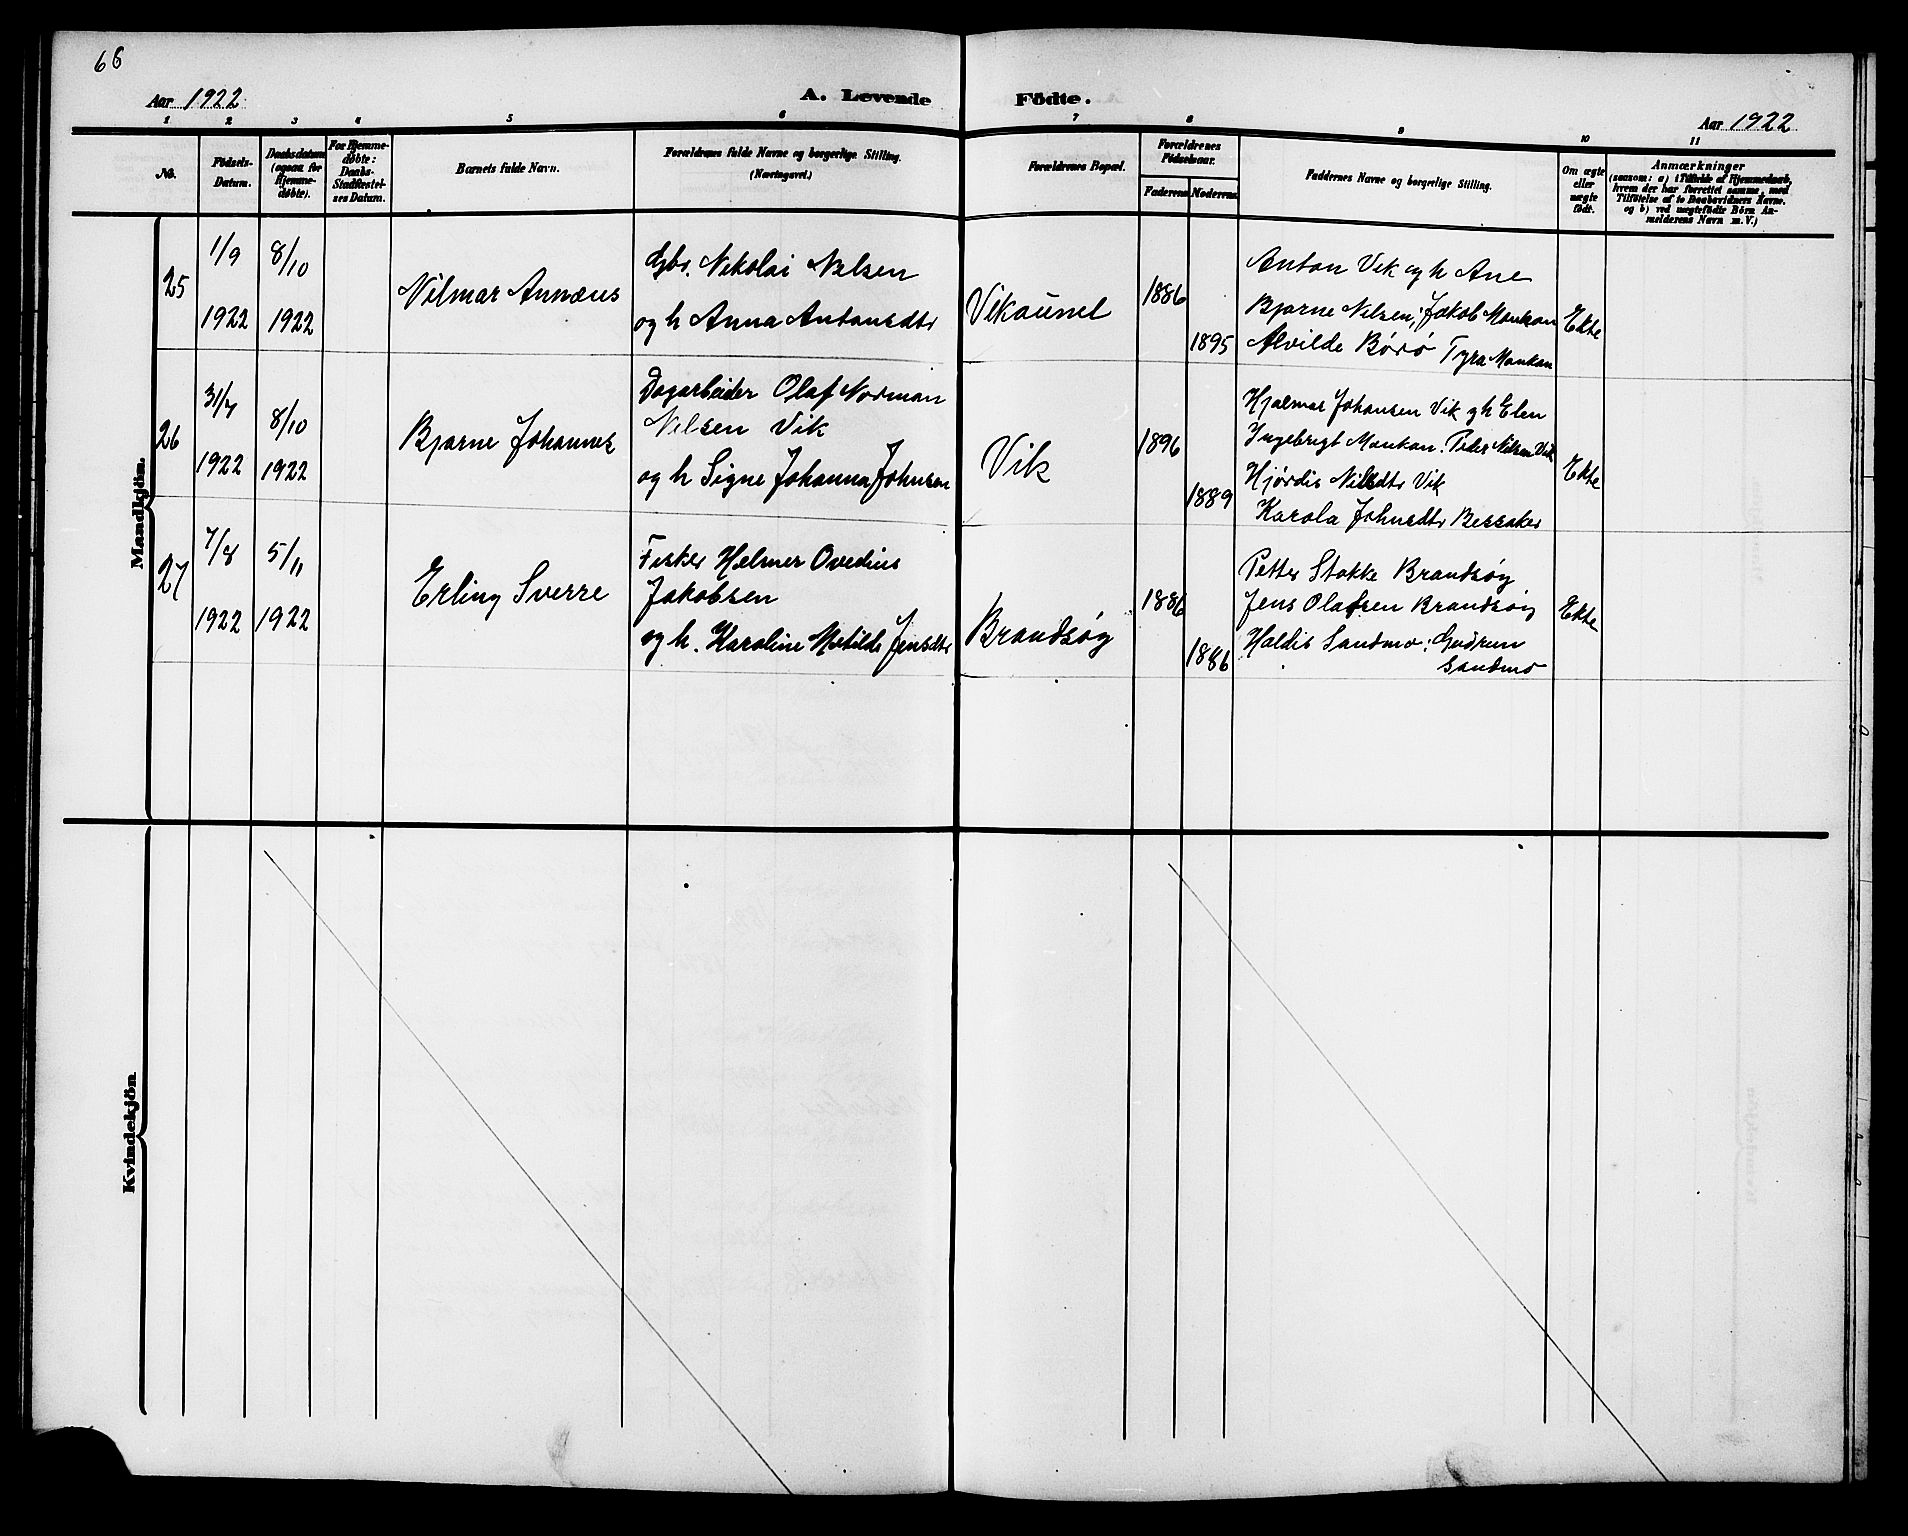 66
Aar 1922
A. Levende Födte.
Aar 1922
1 2 3 4 5 6 7 8 9 10 11
No.
Födsels-
Datum.
Daabsdatum
(ogsaa for
Hjemme-
döbte).
For Hjemme-
döbte:
Daabs-
Stadfæstel-
ses Datum.
Barnets fulde Navn.
Forældrenes fulde Navne og borgerlige Stilling.
(Næringsvei.)
Forældrenes Bopæl.
Forældrenes
Födselsaar.
Faderens Moderens
Faddernes Navne og borgerlige Stilling.
Om ægte
eller
uægte
födt.
Anmærkninger
(saasom: a) i Tilfælde af Hjemmedaab,
hvem der har forrettet samme, med
Tilföielse af to Daabsvidners Navne,
og b) ved uægtefödte Börn An-
melderens Navn m. V.)
Mandkjön.
25
1/9
1922
8/10
1922
Vilmar Annæus
Gbr. Nikolai Nilsen
og h Anna Antonsdtr
Vikaunet
1886
1895
Anton Vik og h Ane
Bjarne Nilsen; Jakob Monkan
Alvilde Børø Tyra Monkan
Ekte
26
31/7
1922
8/10
1922
Bjarne Johannes
Dagarbeider Olaf Norman
Nilsen Vik
og h Signe Johanna Johnsen
Vik
1896
1889
Hjalmar Johansen Vik og h Elen
Ingebrigt Monkan. Peder Nilsen Vik
Hjørdis Nilsdtr Vik
Karola Johnsdtr Bessaker
Ekte
27
7/8
1922
5/11
1922
Erling Sverre
Fisker Helmer Ovedius
Jakobsen
og h. Karoline Matilde Jensdtr
Brandsøy
1886
1886
Petter Stokke Brandsøy
Jens Olafsen Brandsøy
Haldis Sandmo; Gudrun
Sandmo
Ekte
Kvindekjön